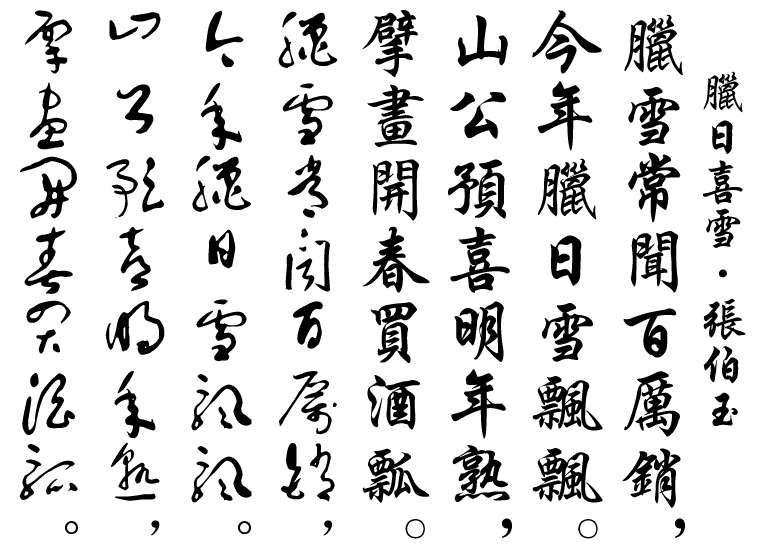 臘日喜雪·張伯玉
臘雪常聞百厲銷,
今年臘日雪飄飄。
山公預喜明年熟,
擘畫開春買酒瓢。
臘雪常聞百厲銷,
今年臘日雪飄飄。
山公預喜明年熟,
擘畫開春買酒瓢。